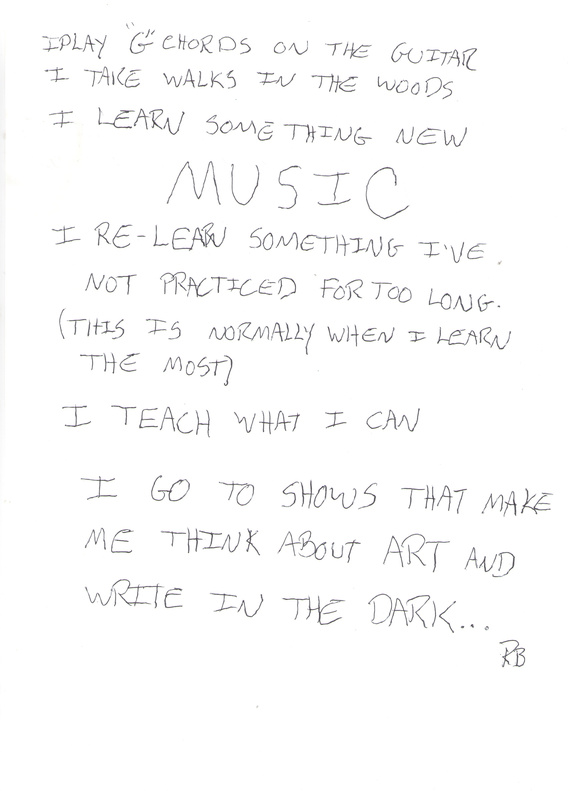 I PLAY "G" CHORDS ON THE GUITAR
I TAKE WALKS IN THE WOODS
I LEARN SOMETHING NEW
MUSIC
I RE-LEARN SOMETHING I'VE
NOT PRACTICED FOR TOO LONG.
(THIS IS NORMALLY WHEN I LEARN
THE MOST)
I TEACH WHAT I CAN
I GO TO SHOWS THAT MAKE
ME THINK ABOUT ART AND
WRITE IN THE DARK...
RB